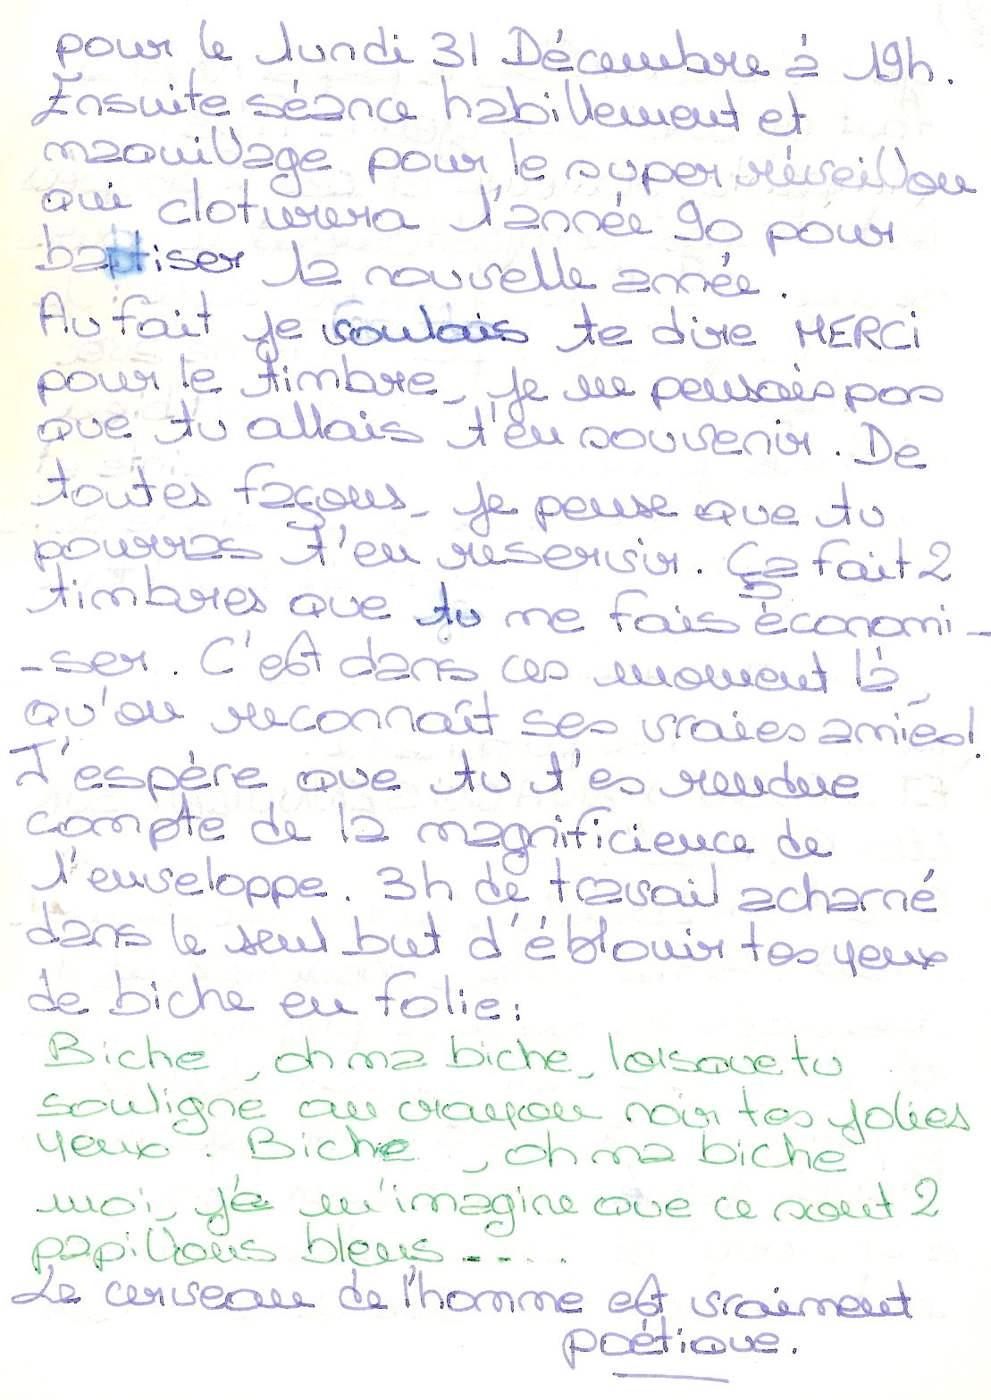 pour le lundi 31 Décembre à 19h.
Ensuite séance habillement et
maquillage pour le super réveillon
qui cloturera l'année 90 pour
baptiser la nouvelle année.
Au fait je voulais te dire MERCI
pour le timbre, je ne pensais pas
que tu allais t'en souvenir. De
toutes façons, je pense que tu
pourras t'en reservir. Ça fait 2
timbres que tu me fais économi-
-ser. C'est dans ces moment là,
qu'on reconnaît ses vraies amies!
J'espère que tu t'es rendue
compte de la magnificience de
l'enveloppe. 3h de travail acharné
dans le seul but d'éblouir tes yeux
de biche en folie:
Biche, oh ma biche, lorsque tu
souligne au crayon noir tes jolies
yeux. Biche, oh ma biche
moi, je m'imagine que ce sont 2
papillons bleus.....
Le cerveau de l'homme est vraiment
poétique.